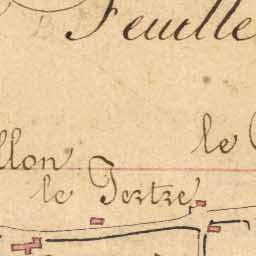 Feuille
le
llon
le Tertre